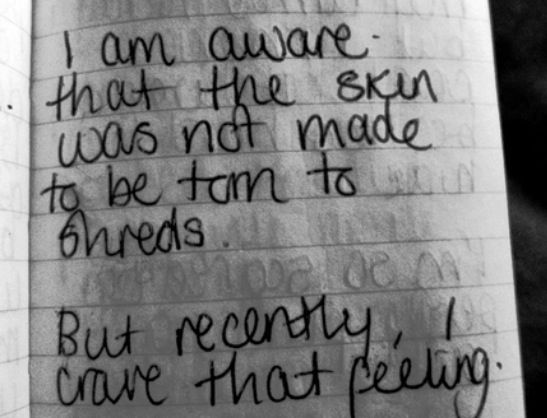 I am aware.
that the skin
was not made
to be torn to
shreds.
But recently, I
crave that feeling.